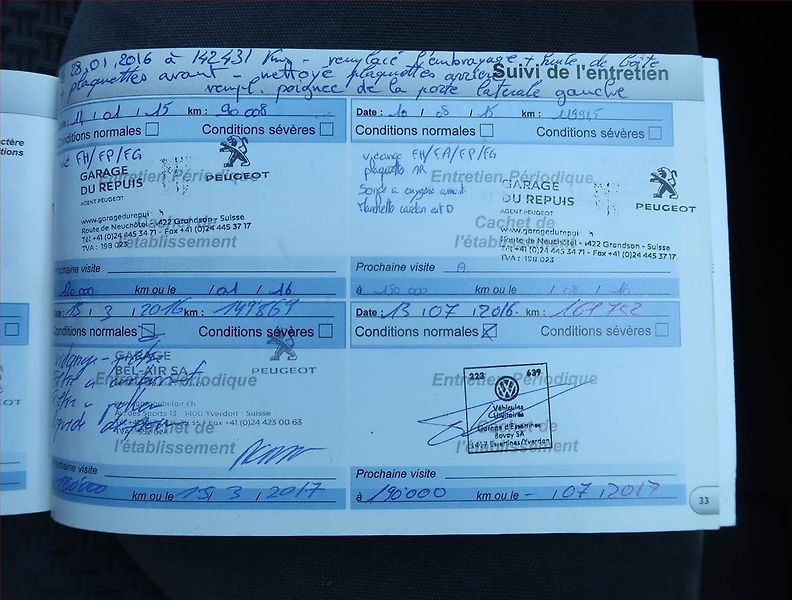 28.01.2016 à 142431 Km - remplacé l'embrayage + huile de boîte
+ plaquettes avant - nettoyé plaquettes arrière
Suivi de l'entretien
rempl. poignée de la porte latérale gauche
14 / 01 / 15 km : 90.008
Conditions normales Conditions sévères
FH/FP/FG
Entretien Périodique
GARAGE
DU REPUIS
AGENT PEUGEOT
PEUGEOT
www.garagedurepui
Route de Neuchâtel - 1422 Grandson - Suisse
Tél +41 (0)24 445 34 71 - Fax +41 (0)24 445 37 17
TVA : 198 023
Cachet de
l'établissement
Prochaine visite
120.000 km ou le / 01 / 16
Date : 10 / 08 / 15 km : 119945
Conditions normales Conditions sévères
vidange FH/FA/FP/FG
plaquettes AR
Sonde a oxygène amont
Entretien Périodique
GARAGE
DU REPUIS
AGENT PEUGEOT
PEUGEOT
www.garagedurepui
Route de Neuchâtel - 1422 Grandson - Suisse
Tél +41 (0)24 445 34 71 - Fax +41 (0)24 445 37 17
TVA : 198 023
Cachet de
l'établissement
Prochaine visite A
à 150 000 km ou le / 08 / 16
Date : 15 / 3 / 2016 km : 149869
Conditions normales Conditions sévères
GARAGE
BEL-AIR SA
PEUGEOT
Entretien Périodique
des Sports 13 - 1400 Yverdon - Suisse
Fax +41 (0)24 423 00 63
Cachet de
l'établissement
Prochaine visite
180'000 km ou le 15 / 3 / 2017
Date : 13 / 07 / 2016 km : 161752
Conditions normales Conditions sévères
Entretien Périodique
223 639
Véhicules
Utilitaires
Garage d'Essertines
Bovay SA
1417 Essertines/Yverdon
Cachet de
l'établissement
Prochaine visite
à 190'000 km ou le - / 07 / 2017
33